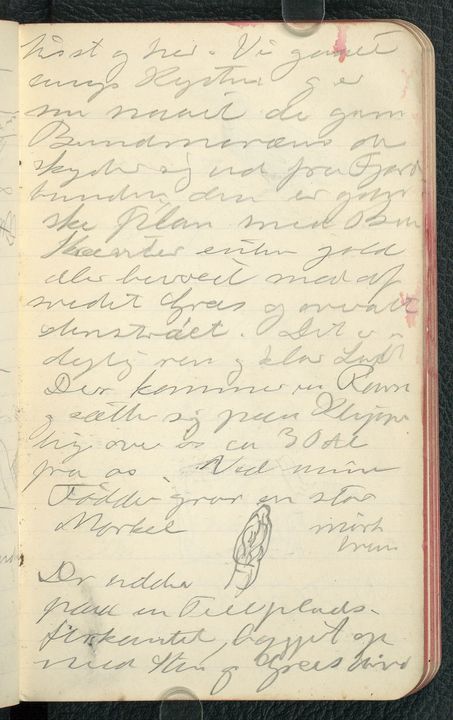 hist og her. Vi gaaet
langs Kysten og er
nu naaet de gam
Bundmoræne der
skyder sig ud fra Fjord
bunden den er gan
ske plan med
Kvarter enten gold
eller bevoxet med af
svedet Græs og overalt
stenstrøet. Det er
dejlig ren og klar Luft
Der kommer en Ravn
og sætter sig paa Klippe
lig over os ca 30 Al
fra os. Ved mine
Fødder gror en stor
Morkel mørk
brun
Der
paa en Teltplads.
firkantet, bygget op
med Sten og Græs